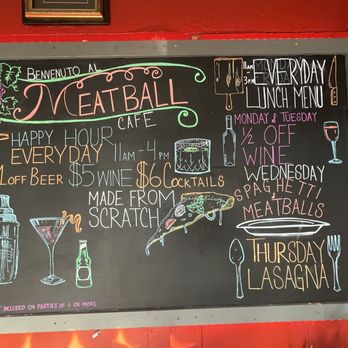 BENVENUTO AL
MEATBALL
CAFE
HAPPY HOUR
EVERYDAY 11AM - 4PM
1 OFF BEER $5 WINE $6 COCKTAILS
MADE FROM
SCRATCH
INCLUDED ON PARTIES OF 6 OR MORE
11AM
3PM
EVERYDAY
LUNCH MENU
MONDAY & TUESDAY
1/2 OFF
WINE
WEDNESDAY
SPAGHETTI
& MEATBALLS
THURSDAY
LASAGNA